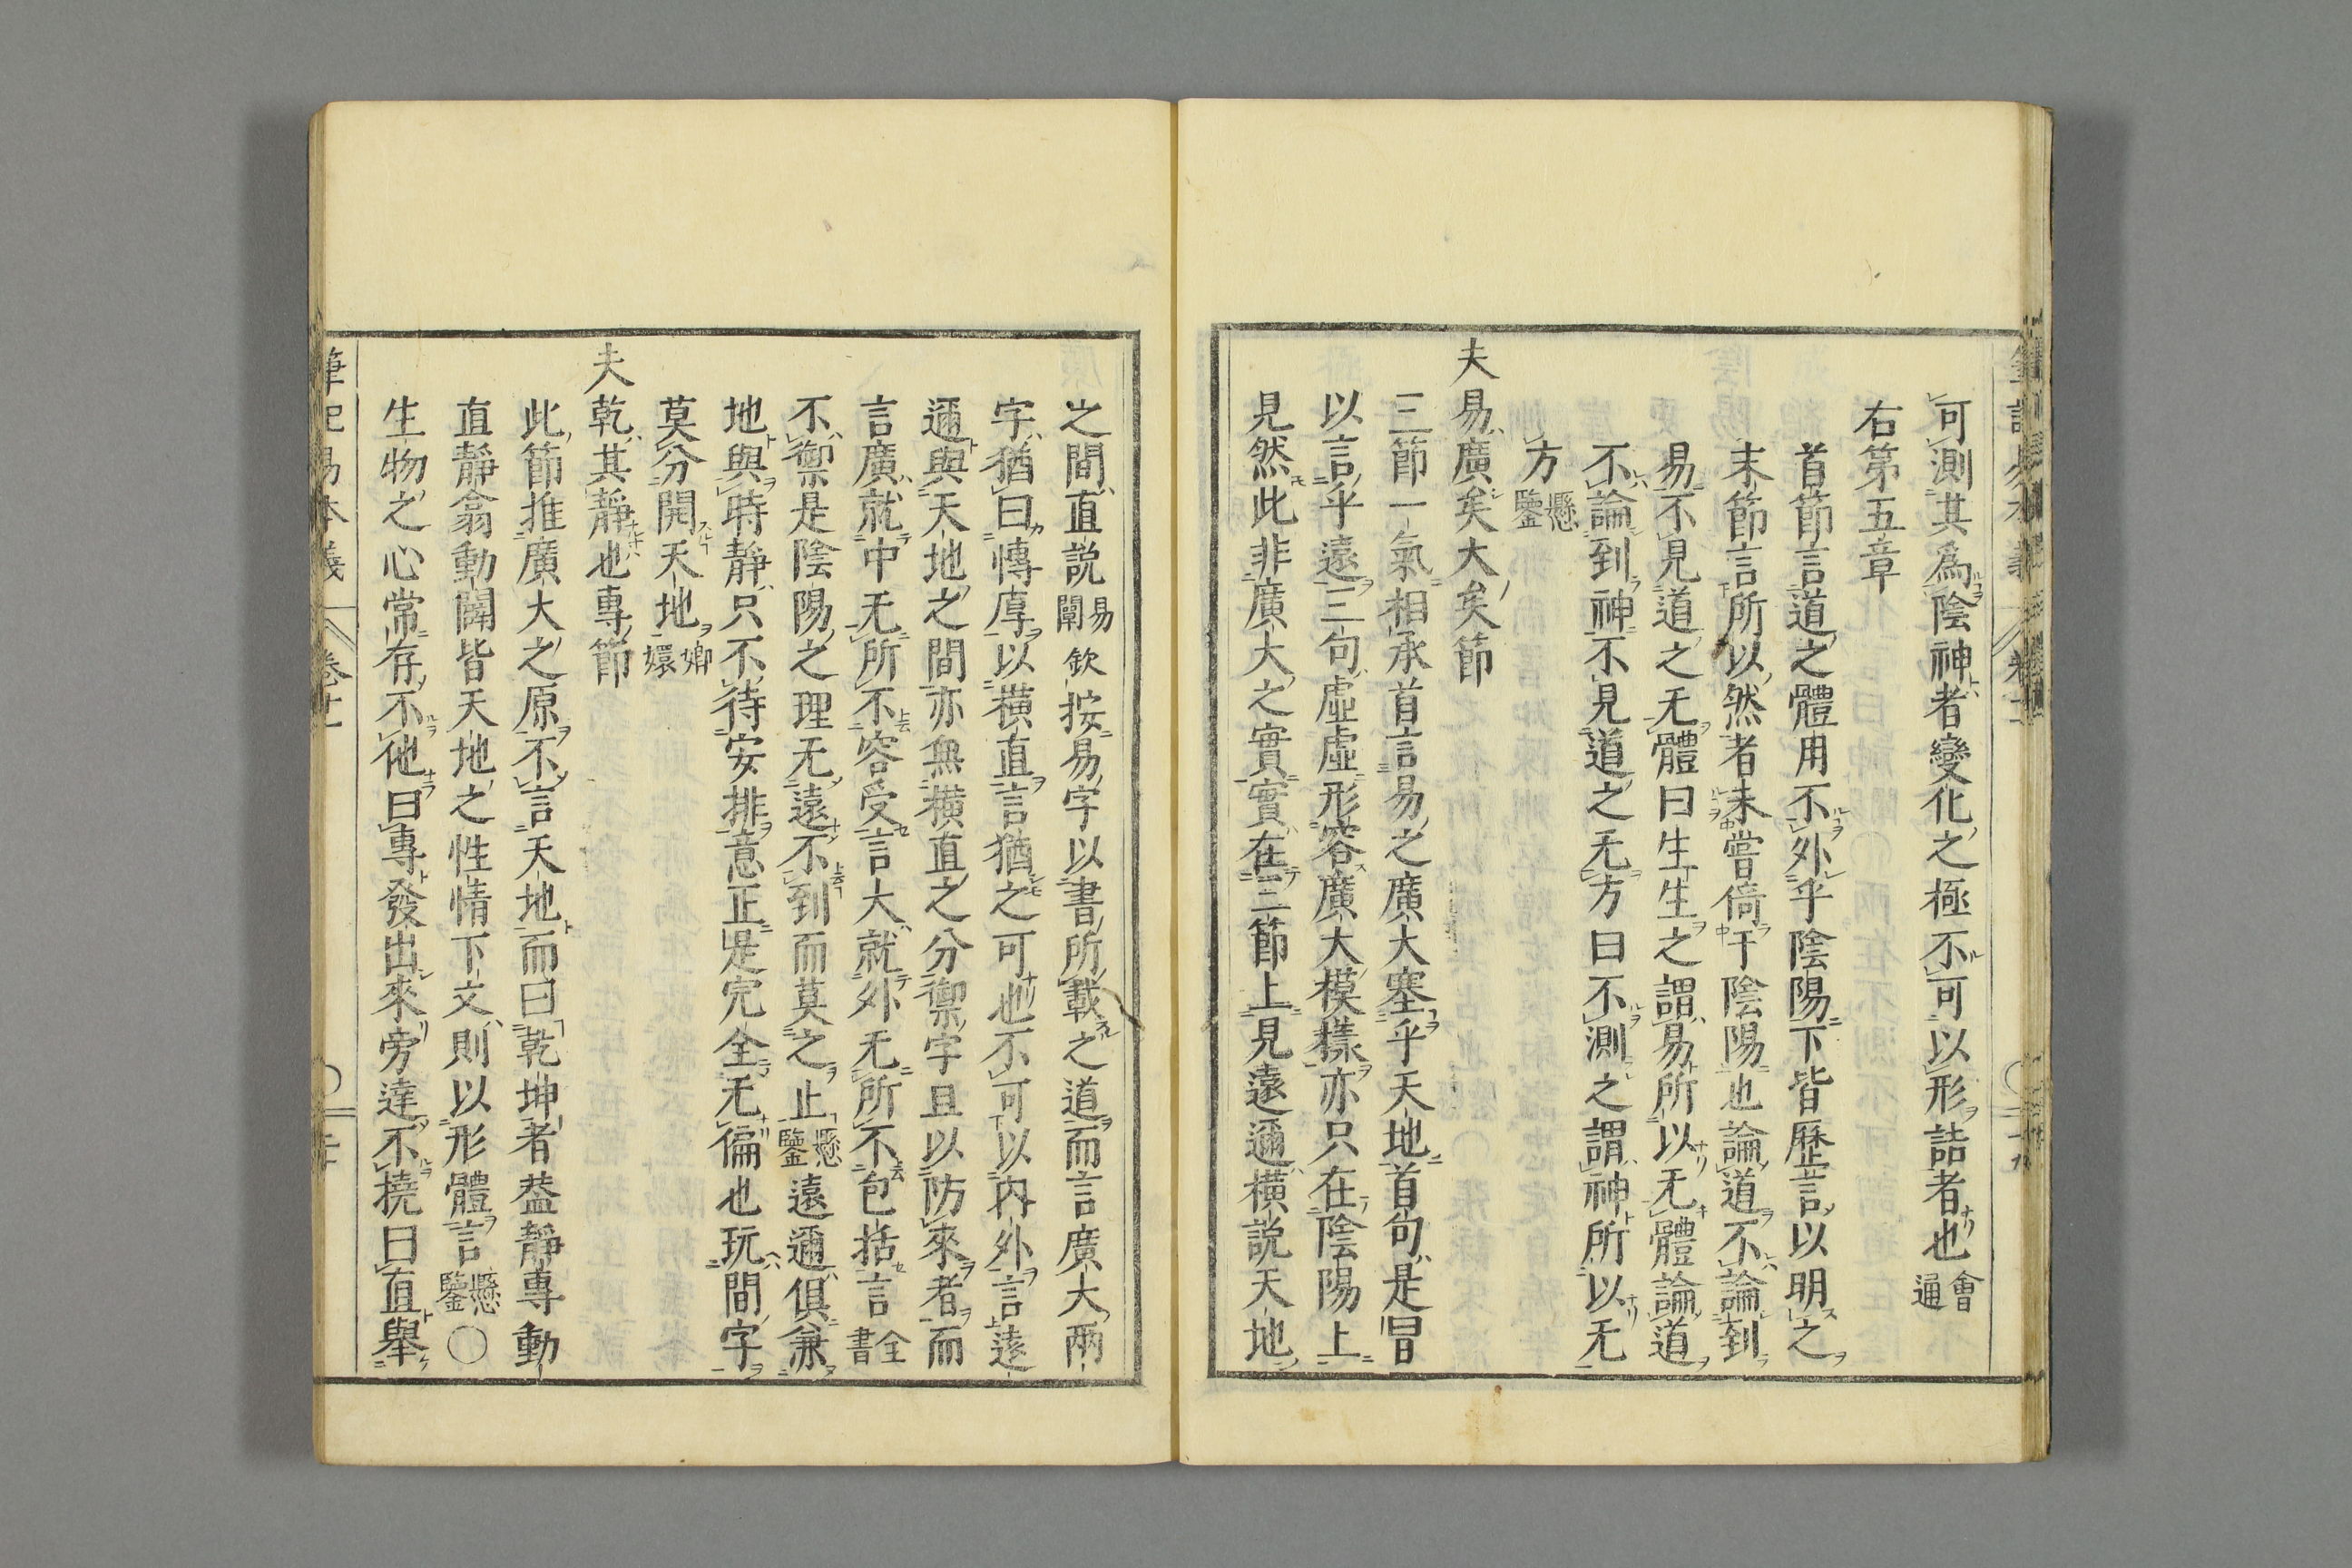 可測其爲陰神者變化之極不可以形詰者也會通
右第五章
首節言道之體用不外乎陰陽下皆歷言以明之
末節言所以然者未嘗倚于陰陽也論道不論到
易不見道之无體曰生生之謂易所以无體論道
不論到神不見道之无方曰不測之謂神所以无
方懸鑒
夫易廣矣大矣節
三節一氣相承首言易之廣大塞乎天地首句是冒
以言乎遠三句虛虛形容廣大模樣亦只在陰陽上
見然此非廣大之實實在三節上見遠邇橫說天地
之間直説易闡欽按易字以書所載之道而言廣大兩
字猶曰博厚以橫直言猶之可也不可以內外言遠
邇與天地之間亦無橫直之分禦字且以防來者而
言廣就中无所不容受言大就外无所不包括言全書
不禦是陰陽之理无遠不到而莫之止懸鑒遠邇俱兼
地與時靜只不待安排意正是完全无偏也玩間字
莫分開天地嫏嬛
夫乾其靜也專節
此節推廣大之原不言天地而曰乾坤者葢靜專動
直靜翕動闢皆天地之性情下文則以形體言懸鑒〇
生物之心常存不他曰專發出來旁達不撓曰直舉
筆記易本義 卷十一